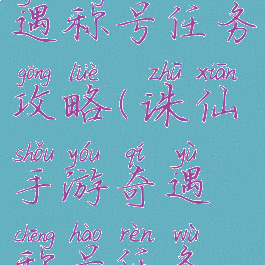 遇称号任务
gōng lüè zhū xiān
攻略(诛仙
shǒu yóu qí yù
手游奇遇
chēng hào rèn wù
称号任务